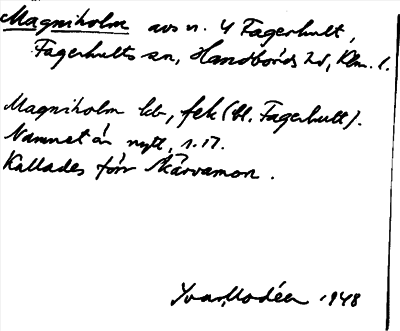 Magniholm avs n. 4 Fagerhult,
Fagerhults sn, Handbörds hd, Klm. l.
Magniholm lht, fek (bl. Fagerhult).
Namnet är nytt, s. 17.
Kallades förr Skärvamon.
Yvar Modéer 1948